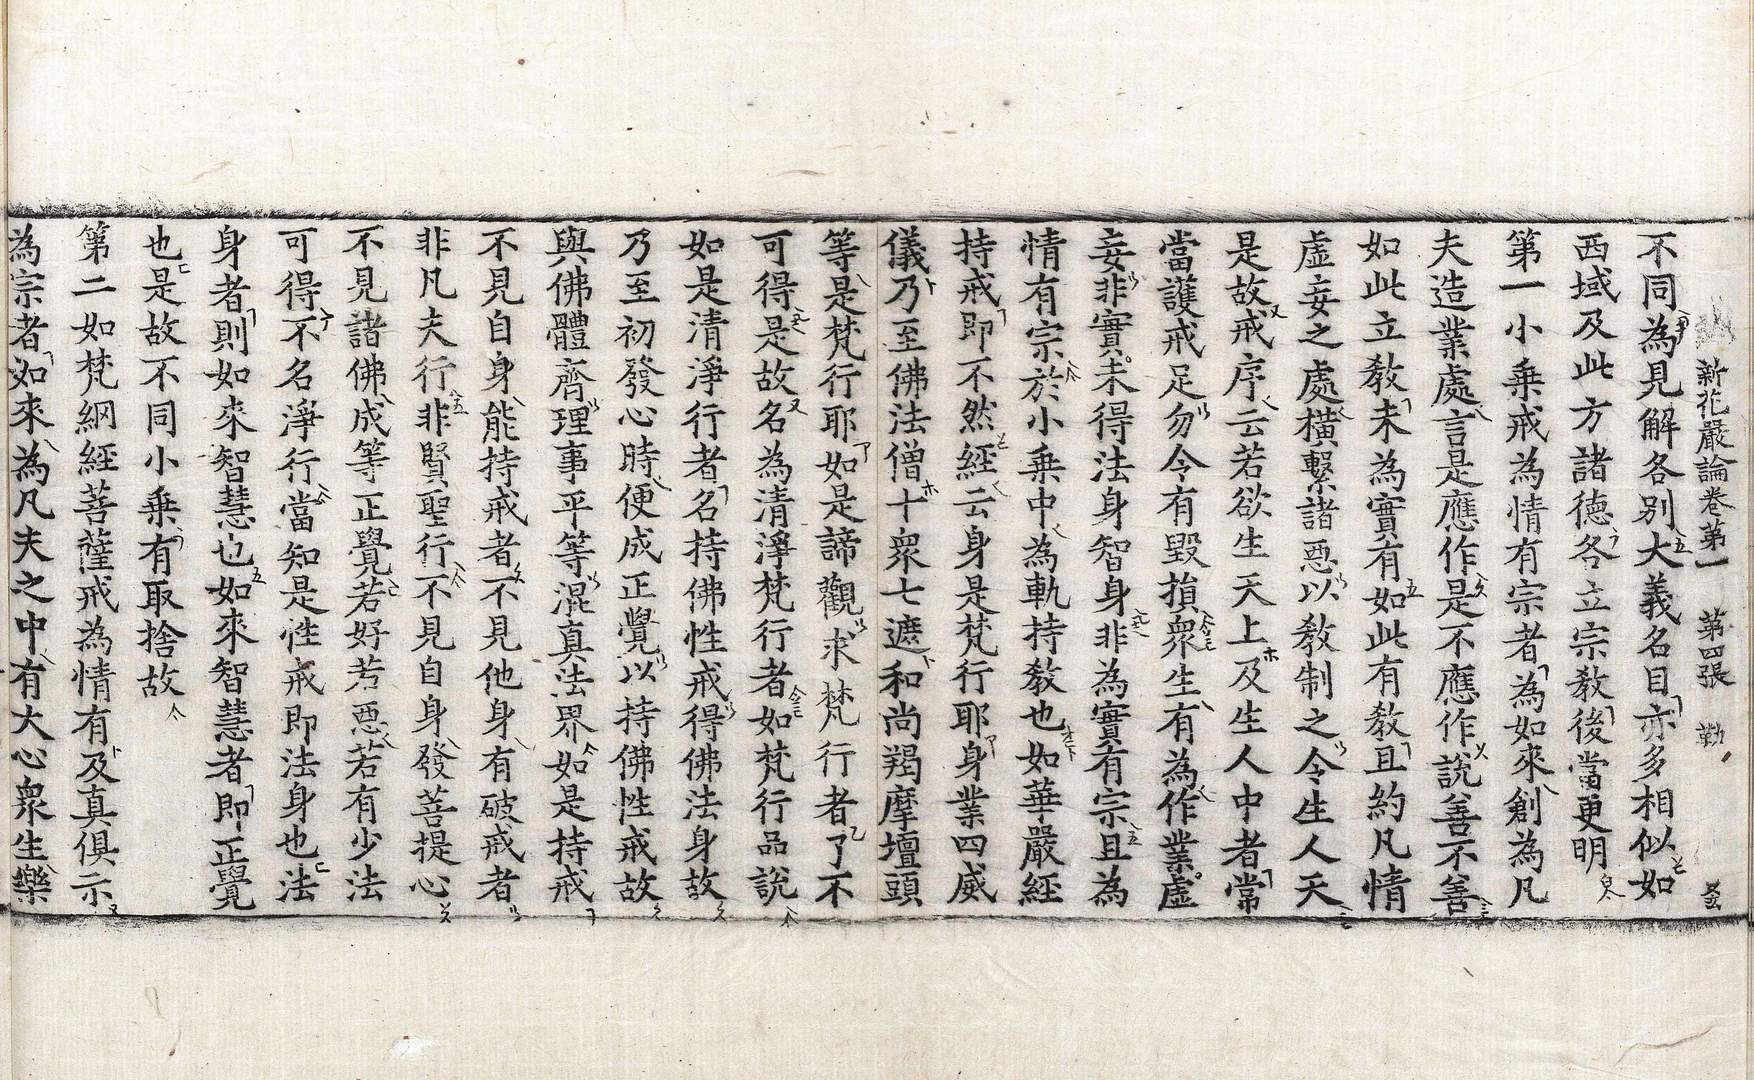 新花嚴論卷第一 第四張 勤
不同為見解各別大義名目亦多相似如
西域及此方諸德各立宗教後當更明
第一小乗戒為情有宗者為如來創為凡
夫造業處言是應作是不應作說善不善
如此立教未為實有如此有教且約凡情
虛妄之處橫繫諸惡以教制之令生人天
是故戒序云若欲生天上及生人中者常
當護戒足勿令有毀損衆生有為作業虛
妄非實未得法身智身非為實有宗且為
情有宗於小乗中為軌持教也如華嚴經
持戒即不然經云身是梵行耶身業四威
儀乃至佛法僧十衆七遮和尚羯摩壇頭
等是梵行耶如是諦觀求梵行者了不
可得是故名為清淨梵行者如梵行品說
如是清淨行者名持佛性戒得佛法身故
乃至初發心時便成正覺以持佛性戒故
與佛體齊理事平等混真法界如是持戒
不見自身能持戒者不見他身有破戒者
非凡夫行非賢聖行不見自身發菩提心
不見諸佛成等正覺若好若惡若有少法
可得不名淨行當知是性戒即法身也法
身者則如來智慧也如來智慧者即正覺
也是故不同小乗有取捨故
第二如梵網經菩薩戒為情有及真俱示
為宗者如來為凡夫之中有大心衆生樂